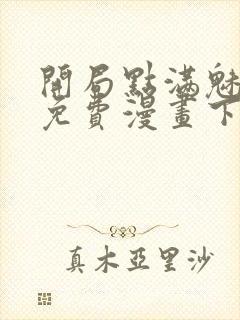 開局點滿魅
免費漫畫下
真木亞里沙